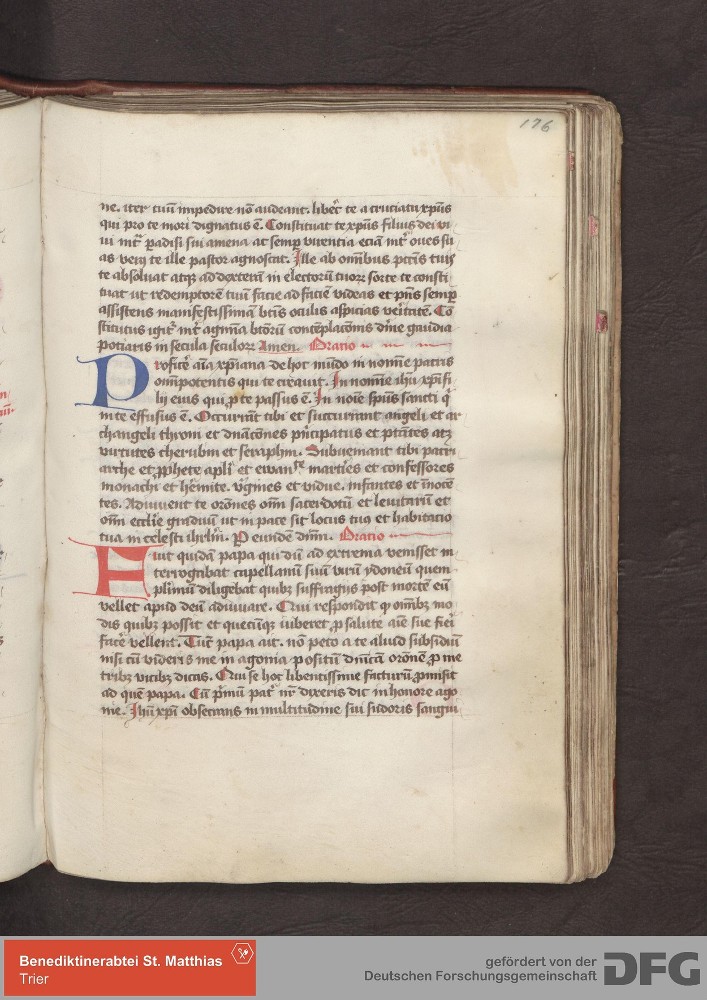 176
ne. iter tuū impedire nō audeant. liber͛ te a cruciatu xp̄us
qui pro te mori dignatus ē. Constituat te xp̄us filius dei vi
ui int͛ paradisi sui amena ac semp̱ virentia eciā int͛ oues su
as verꝯ te ille pastor agnoscat. Ille ab om̄ibus pctīs tuis
te absoluat atqꝫ ad dexterā in electorū tuorꝝ sorte te consti
tuat ut redemptorē tuū facie ad faciē videas et p̄ns semp̱
assistens manifestissimā btīs oculis aspicias veritatē. Cō
stitutus igit͛ int͛ agmīna btōrū contēplacōnis diīne gaudia
potiaris in secula seculorꝝ Amen. Oratio
Proficer͛ aīa xp̄iana de hoc mūdo in noīme patris
om̄ipotentis qui te creauit. In noīme ihū xp̄i fi
lij eius qui p̱ te passus ē. In noīe sp̄us sancti q̇
in te effusus ē. Occurrāt tibi et succurrant angeli et ar
changeli throni et dn̄acōnes pn̄cipatus et ptātes atqꝫ
virtutes cherubin et seraphin. Subueniant tibi patri
arche et ꝓphete apl̄i et ewanᵗᵉ martires et confessores
monachi et hēmite. v͛gines et vidue. infantes et inocē
tes. Adiuuent te orōnes om̄ sacerdotū et leuitarū et
om̄ eccl̄ie graduū ut in pace sit locus tuꝯ et habitatio
tua in celesti ihrlm̄. P̱ eundē dn̄m. Oratio
Fuit quidā papa qui dū ad extrema venisset in
terrogabat capellanū suū virū ydoneū quem
pl̄imū diligebat quibꝫ suffragijs post mortē eū
vellet apud deū adiuuare. Cui respondit q̄ om̄ibꝫ mo
dis quibꝫ possit et quecūqꝫ iuberet ꝓ salute aīe sue fieri
facer͛ vellent. Tūc papa ait. nō peto a te aliud subsidiū
nisi cū videris me in agonia positū dn̄icā orōnē ꝓ me
tribꝫ vicibꝫ dicas. Qui se hoc libentissime facturū ꝓmisit
ad quē papa. Cū p̄mū pat͛ nr̄ dixeris dic in honore ago
nie. Ihū xp̄i obsecrans in multitudine sui sudoris sangui
Benediktinerabtei St. Matthias
Trier
gefördert von der
Deutschen Forschungsgemeinschaft
DFG